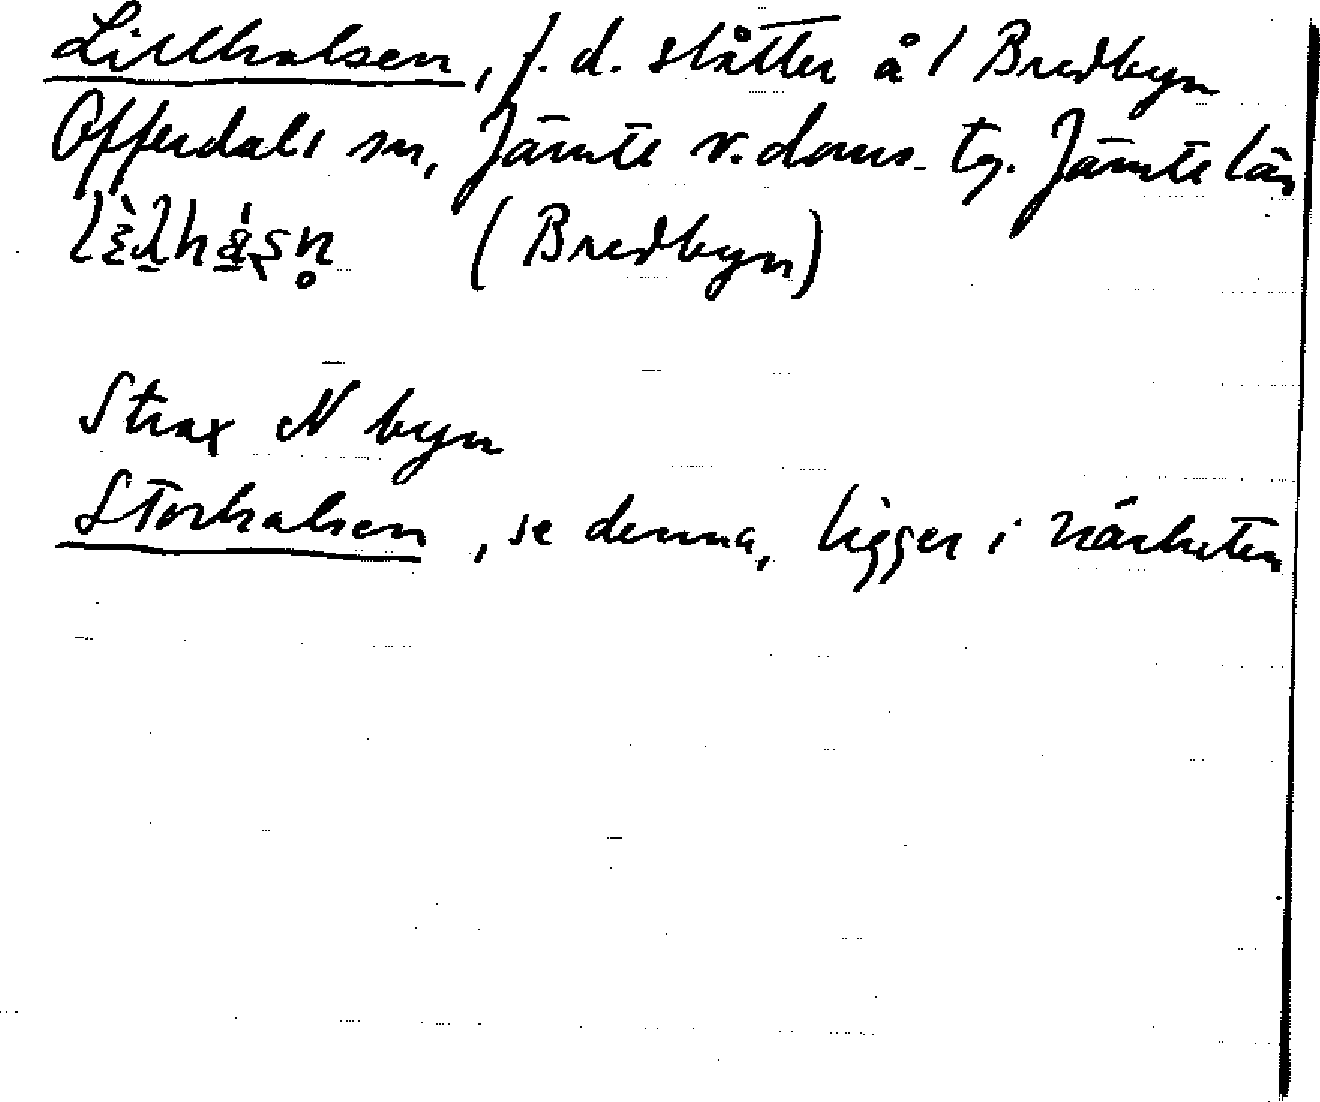 Lillhalsen, f.d. slåtter å / Bredbyn
Offerdals sn, Jämtl v. doms. tg. Jämtl län
(Bredbyn)
Strax N byn
Storhalsen, se denna, ligger i närheten